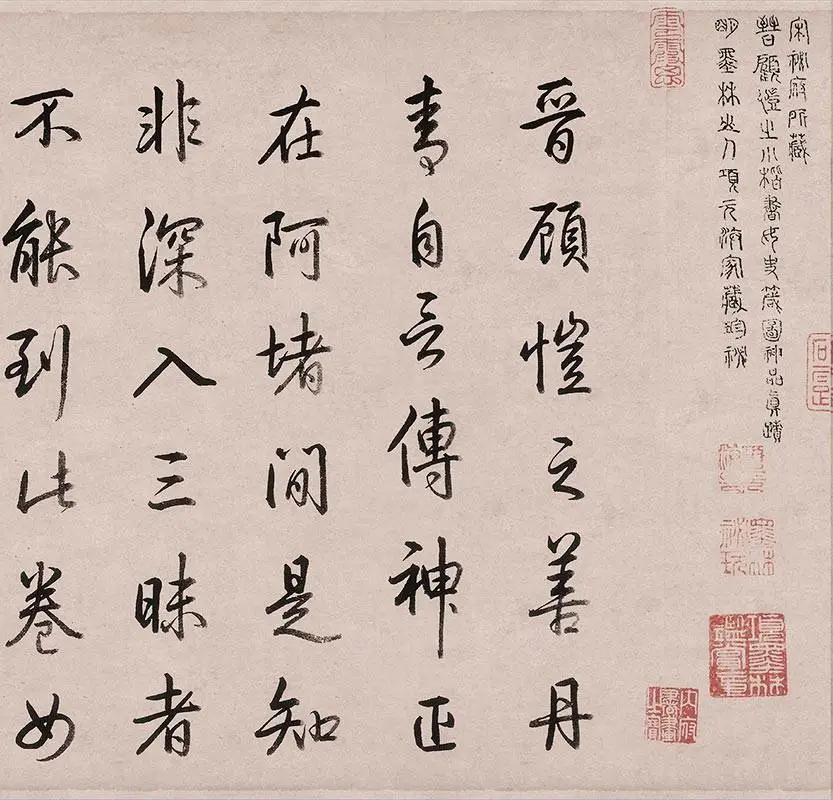 宋祕府所藏
晉顧愷之小楷書女史箴圖神品真蹟
明墨林山人項元汴家藏珍祕
墨林祕玩
項墨林鑑賞章
晉顧愷之善丹
青自言傳神正
在阿堵間是知
非深入三昧者
不能到此卷女